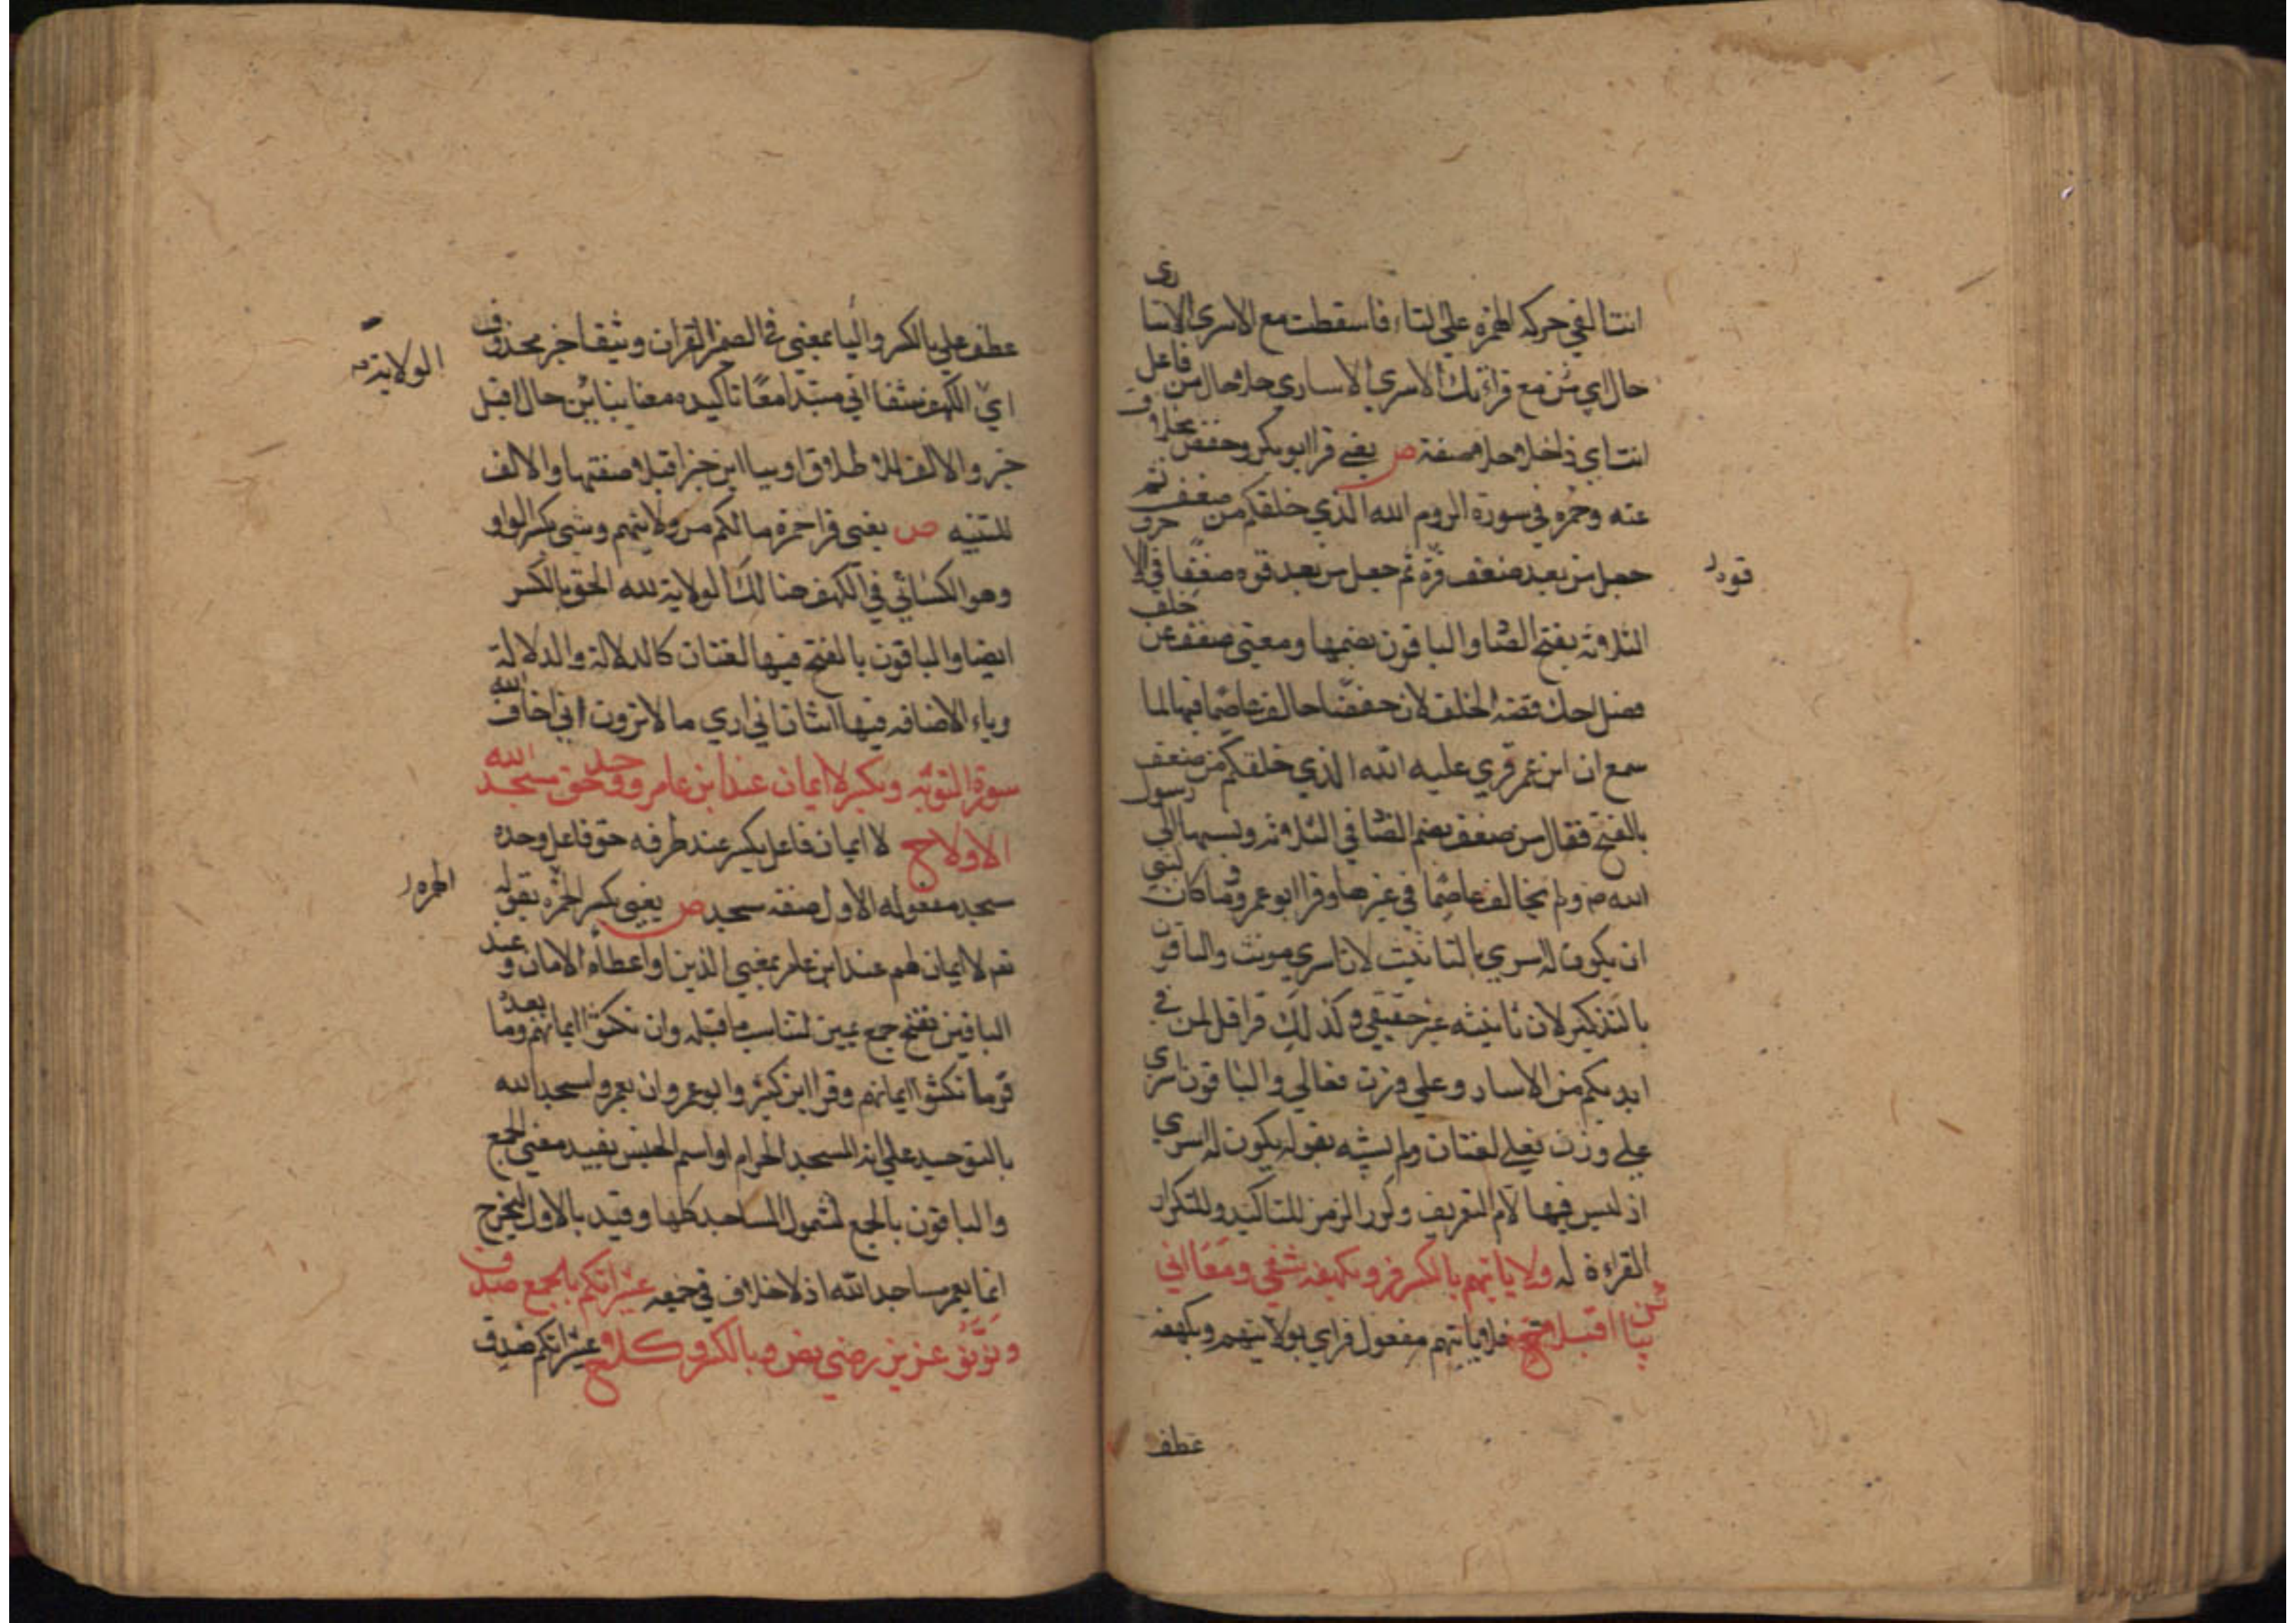 انثا القي حركة الهمزة علي لتاء فاسقطت مع الاسرى الاسارى
حال اي ش مع قراءتك الاسرى الاسارى حلا حال من فاعل
انث اي ذا حلا وحلا صفة ص يعني قرا ابو بكر وحفص بخلاف
عنه وحمزة في سورة الروم الله الذي خلقكم من ضعف ثم
جعل من بعد ضعف قوة ثم جعل من بعد قوة ضعفا في الاحرف
قوة
الثلاثة بفتح الضا والباقون بضمها ومعنى ضعف عن خلف
فصل حك قصة الخلف لان حفصا خالف عاصما فيها لما
سمع ان ابن عمر قري عليه الله الذي خلقكم من ضعف
بالفتح فقال من ضعف بضم الضا في الثلاثة ونسبها الي رسول
الله ص ولم يخالف عاصما في غيرها وقرا ابو عمرو وما كان لنبي
ان يكون له اسري بالتانيث لان اسري مونث والباقون
بالتذكير لان تانيثه غير حقيقي وكذلك قرا قل لمن في
ايديكم من الاسارى علي وزن فعالي والباقون اسرى
علي وزن فعلي لغتان ولم يشبه بقوله يكون له اسرى
اذ ليس فيها لام التعريف وكرر الرمز للتاكيد وللتكرار
القراءة له ولايتهم بالكسر فز وبكهفه شفي ومعا اني
بيا اقبلا ح فلايتهم مفعول فز اي بولايتهم وبكهفه
عطف
عطف علي بالكسر والبا بمعنى في الضمير القران وشفا خبر محذوف
اي الكهف شفا اني مبتدا معا تاكيده معنا بيائن حال اقبل
الولاية
خبر والالف للاطلاق او بيا اين خبر اقبلا صفتها والالف
للتثنيه ص يعني قرا حمزة مالكم من ولايتهم وشي بكسر الواو
وهو الكسائي في الكهف هنا لك الولاية لله الحق بالكسر
ايضا والباقون بالفتح فيها لغتان كالدلالة والدلالة
وياء الاضافه فيها اثنان اني اري ما لا ترون اني اخاف الله
سورة التوبة ويكسر لا ايمان عند ابن عامر ووحد حق مسجد الله
الاولا ح لا ايمان فاعل يكسر عند ظرفه حق فاعل وحده
مسجد مفعوله الاول صفة مسجد ص يعني بكسر الهمزه بقوله
الهمزة
تعـ لا ايمان لهم عند ابن عامر بمعني الذين او اعطاء الامان وعند
الباقين بفتح جمع يمين لتناسب ما قبله وان نكثوا ايمانهم وما بعده
قوما نكثوا ايمانهم وقرا ابن كثير وابو عمرو ان يعمروا مسجد الله
بالتوحيد علي انه المسجد الحرام او اسم الجنس يفيد معني الجمع
والباقون بالجمع لشمول المساجد كلها وقيد بالاول ليخرج
انما يعمر مساجد الله اذ لا خلاف في جمعه عشيراتكم بالجمع صدق
ونونو عزيز رضي نص وبالكسر وكلا ح عشيراتكم صدق